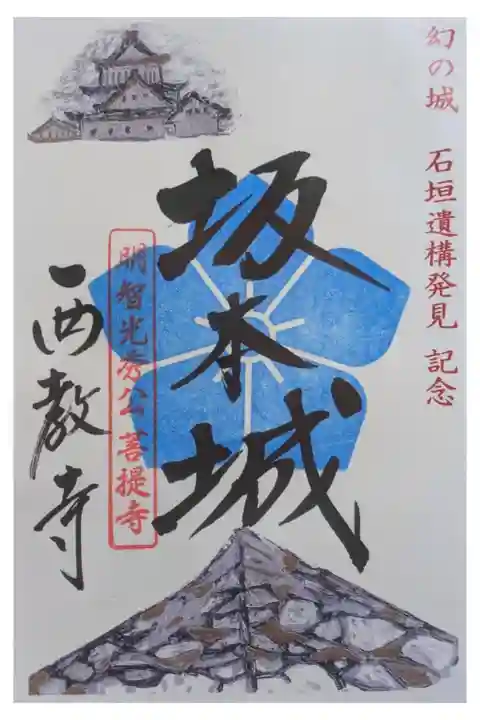 幻の城 石垣遺構発見 記念
坂本城
明智光秀公菩提寺
西教寺